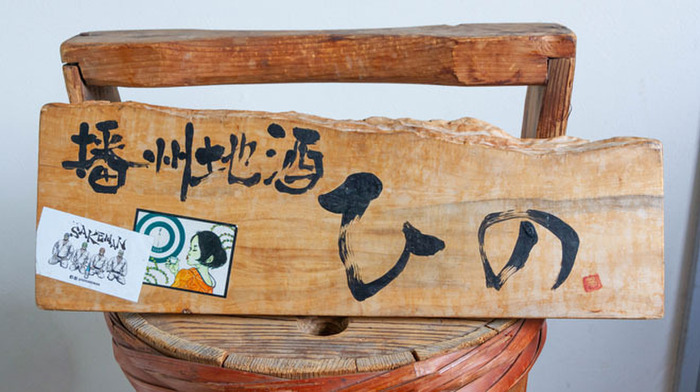 播州地酒
ひの
SAKEMAN